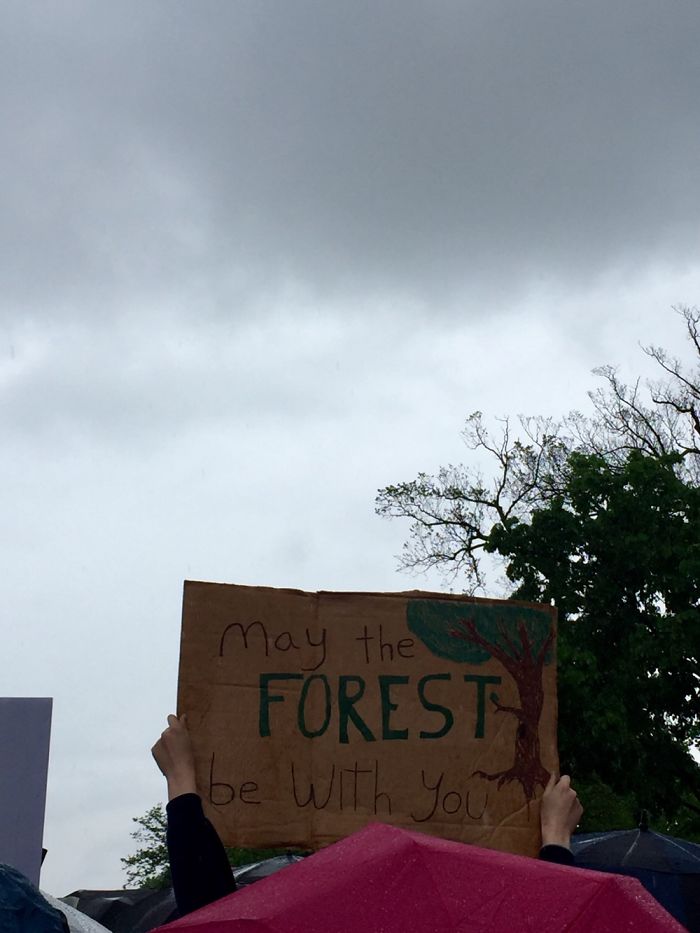 May the
FOREST
be with you